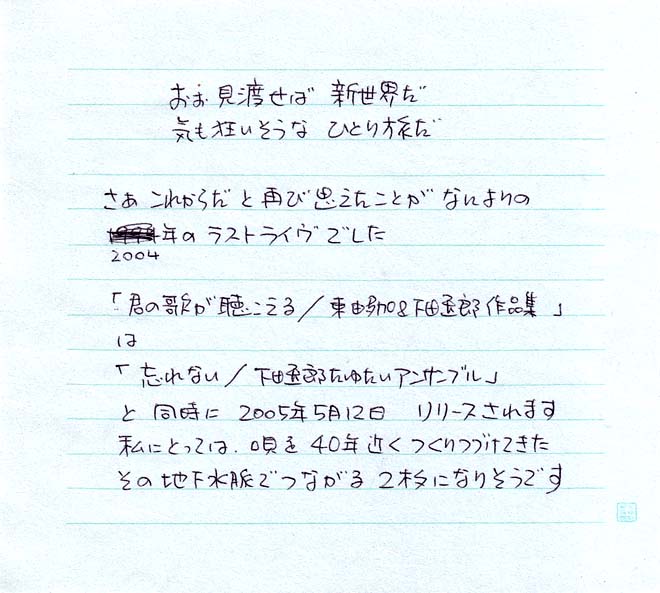 おお 見渡せば 新世界だ
気も狂いそうな ひとり旅だ
さあ これからだ と 再び 思えたことが なによりの
年の ラストライヴでした
2004
「君の歌が聴こえる／東由多加&下田逸郎 作品集」
は
「忘れない／下田逸郎たゆたいアンサンブル」
と 同時に 2005年5月12日 リリースされます
私にとっては、唄を 40年近く つくりつづけてきた
その 地下水脈で つながる 2枚に なりそうです